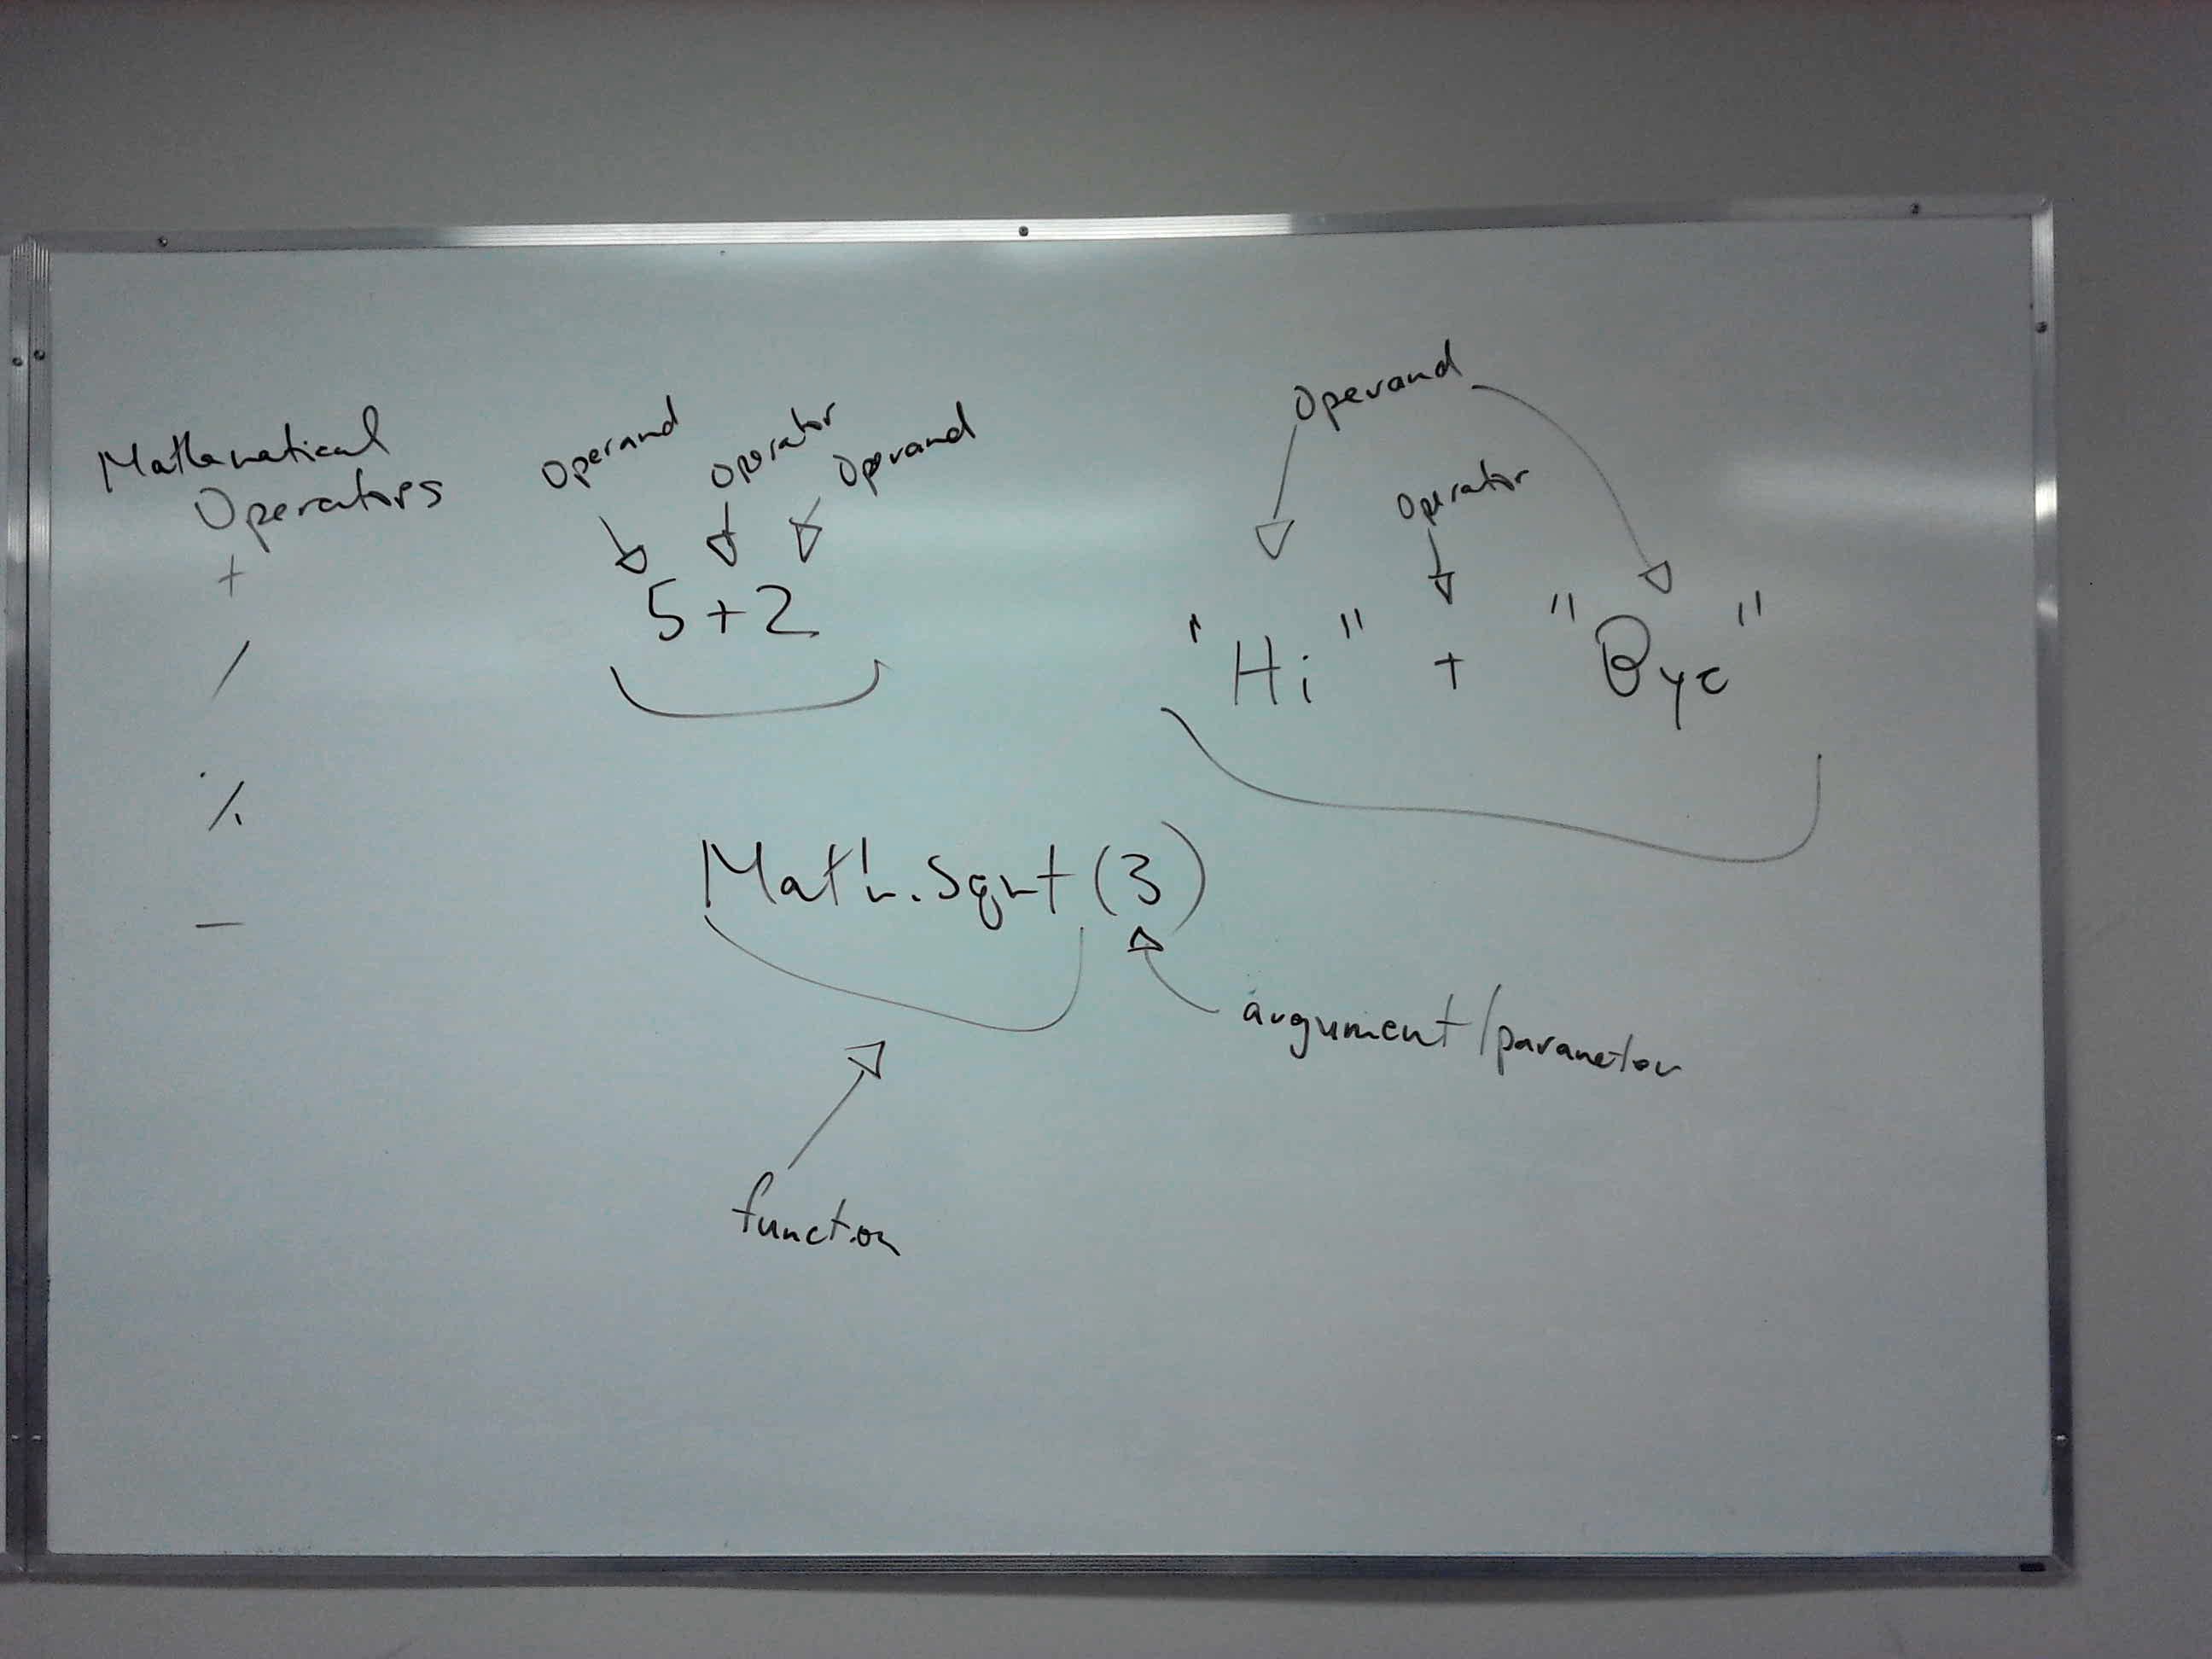 Mathematical
Operators
+
/
%
-
Operand
Operator
Operand
5+2
Operand
Operator
"Hi" + "Bye"
Math.Sqrt(3)
argument/parameter
function